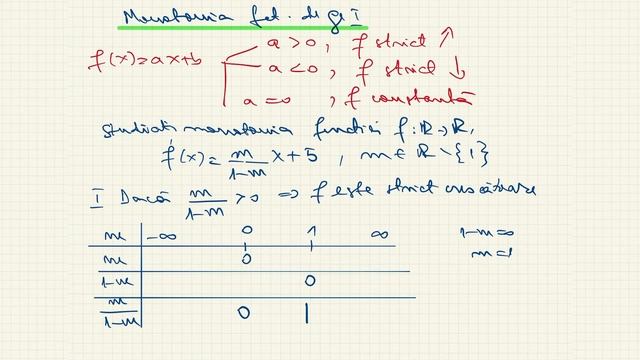 Monotonia fct. de gr I
f(x)=ax+b
a>0, f strict ↑
a<0, f strict ↓
a=0, f constantă
Studiati monotonia functiei f:ℝ→ℝ,
f(x)=m/(1-m) x+5, m∈ℝ\{1}
I Dacă m/(1-m) >0 ⇒ f este strict crescătoare
m -∞ 0 1 ∞
m 0
1-m 0
m/(1-m) 0 |
1-m=0
m=1